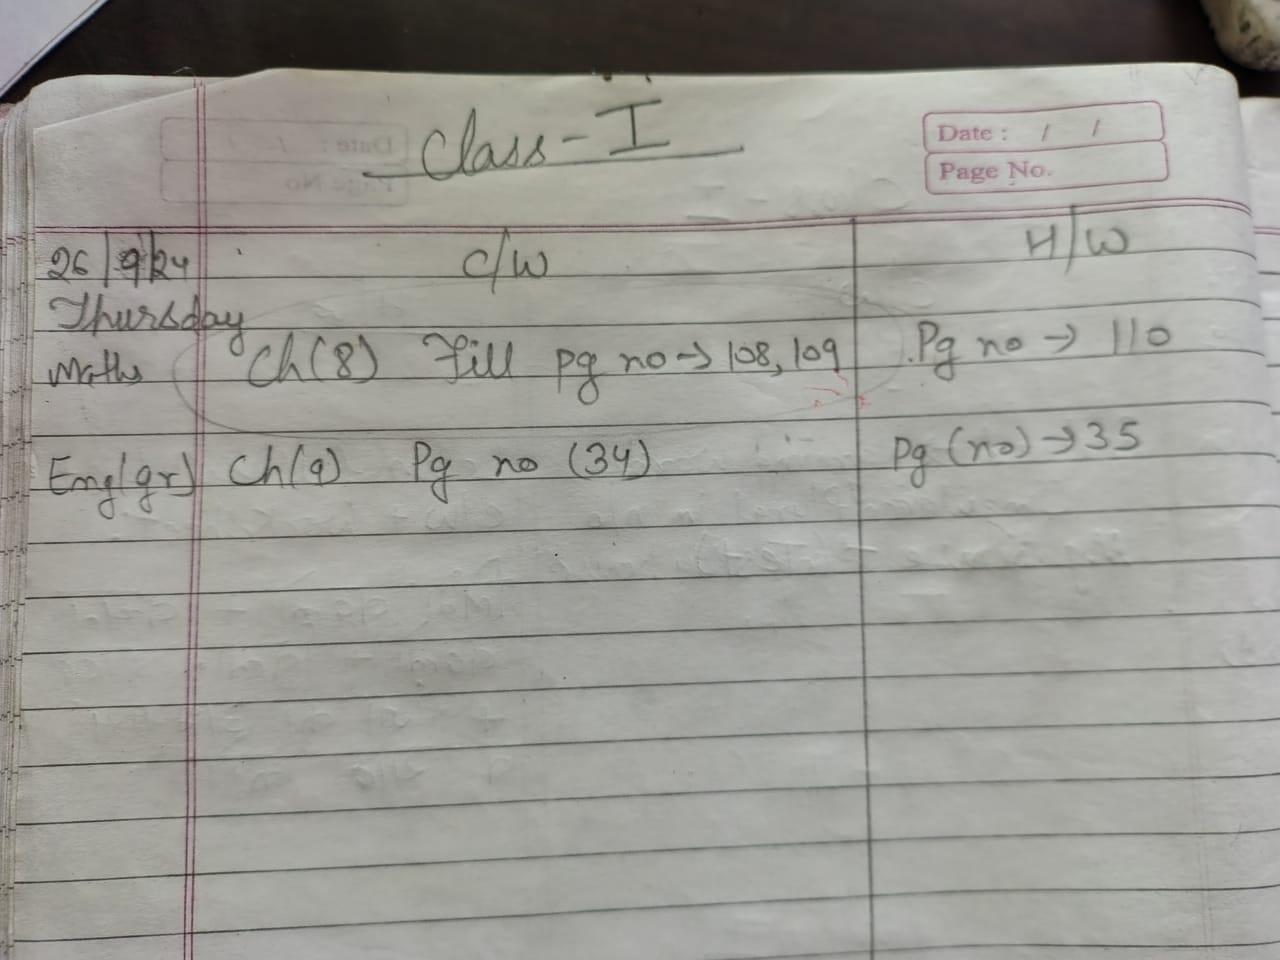 Class - I
Date : / /
Page No.
26/9/24 C/W H/W
Thursday
Maths Ch(8) Fill pg no → 108, 109 Pg no → 110
Eng(gr) Ch(9) Pg no (34) Pg (no) → 35